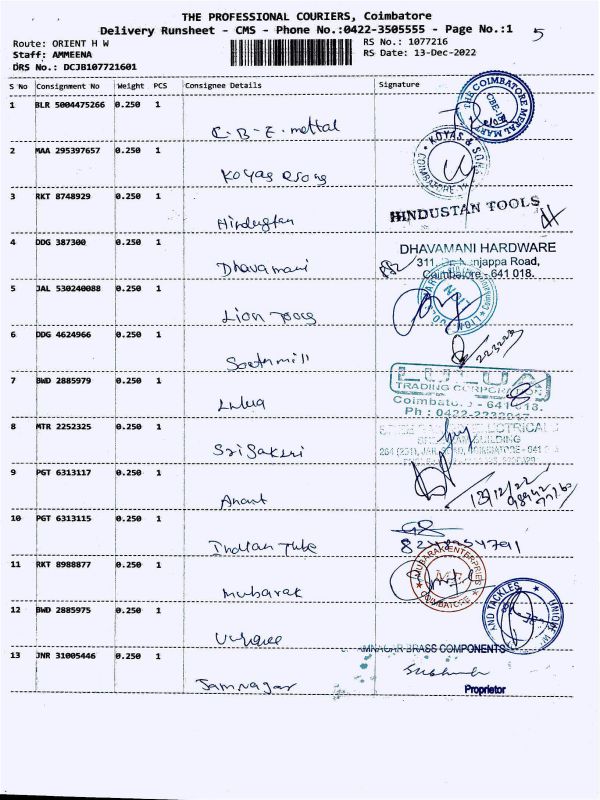 THE PROFESSIONAL COURIERS, Coimbatore
Delivery Runsheet - CMS - Phone No.:0422-3505555 - Page No.:1
5
Route: ORIENT H W
RS No.: 1077216
Staff: AMMEENA
RS Date: 13-Dec-2022
DRS No.: DCJB107721601
S No Consignment No Weight PCS Consignee Details Signature
1 BLR 5004475266 0.250 1
C-B-E-mettal
THE COIMBATORE METAL MART
CBE-1
2 MAA 295397657 0.250 1
KOYAS & SONS
COIMBATORE
Koyas
3 RKT 8748929 0.250 1
Hindustan
HINDUSTAN TOOLS
4 DDG 387300 0.250 1
Dhavamani
DHAVAMANI HARDWARE
311, Dr. Nanjappa Road,
Coimbatore - 641 018.
5 JAL 530240088 0.250 1
Lion Tools
LION
6 DDG 4624966 0.250 1
7 BWD 2885979 0.250 1
Lulua
TRADING CORPORATION
Coimbatore - 641 018.
8 MTR 2252325 0.250 1
ELECTRICAL
BUILDING
COIMBATORE - 641
9 PGT 6313117 0.250 1
Anant
13/12/22
10 PGT 6313115 0.250 1
Indian Tube
11 RKT 8988877 0.250 1
Mubarak
MUBARAK ENTERPRIES
COIMBATORE
12 BWD 2885975 0.250 1
AND TACKLES
UNIQUE
13 JNR 31005446 0.250 1
Jamnagar
AMNAGAR BRASS COMPONENTS
Proprietor